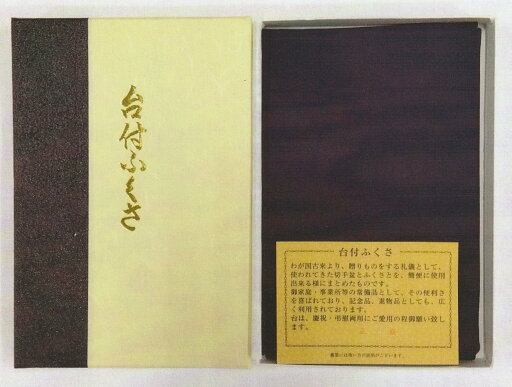 台付ふくさ
台付ふくさ
わが国古来より、贈りものをする礼儀として、
使われてきた切手盆とふくさとを、簡便に使用
出来る様にまとめたものです。
御家庭・事業所等の常備品として、その便利さ
を喜ばれており、記念品、進物品としても、広
く利用されております。
台は、慶祝・弔慰両用にご愛用の程御願い致し
ます。